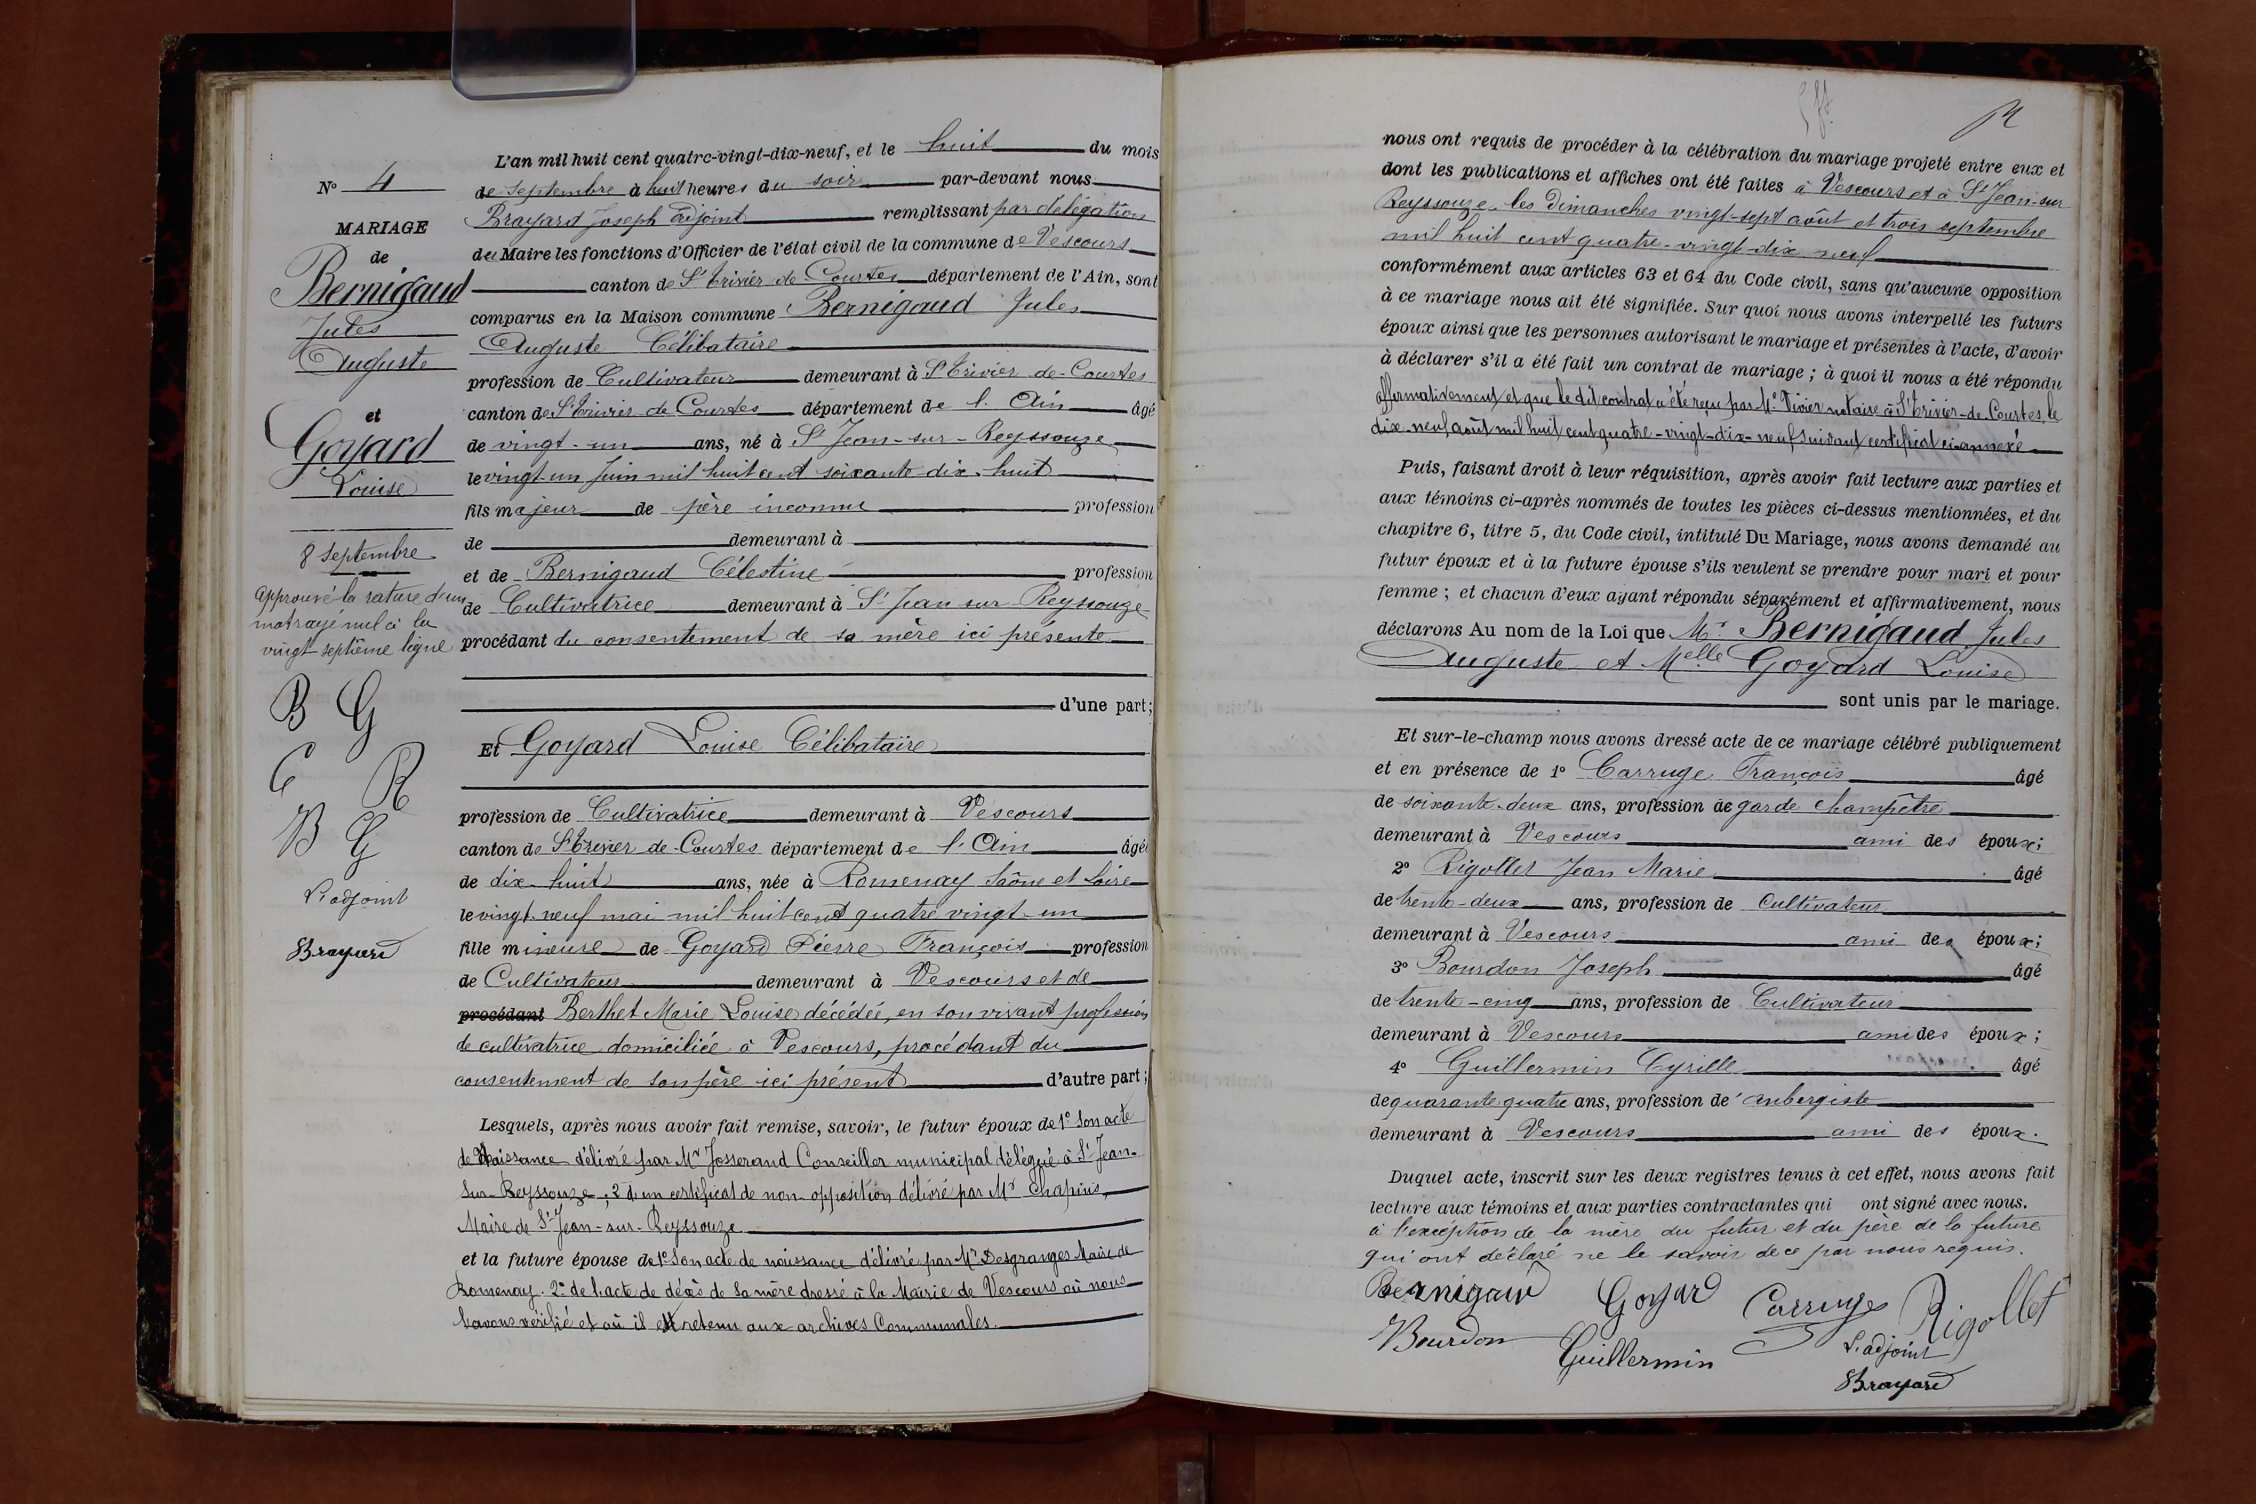 N° 4
MARIAGE
de
Bernigaud
Jules
Auguste
et
Goyard
Louise
8 Septembre
Approuvé la rature d'un
mot rayé nul à la
vingt-septième ligne
B G
C R
B G
L'adjoint
Brayard
L'an mil huit cent quatre-vingt-dix-neuf, et le huit du mois
de Septembre à huit heures du soir par-devant nous
Brayard Joseph adjoint remplissant par délégation
du Maire les fonctions d'Officier de l'état civil de la commune de Vescours
canton de St Trivier de Courtes département de l'Ain, sont
comparus en la Maison commune Bernigaud Jules
Auguste Célibataire
profession de Cultivateur demeurant à St Trivier de Courtes
canton de St Trivier de Courtes département de l'Ain âgé
de vingt-un ans, né à St Jean-sur-Reyssouze
le vingt-un Juin mil huit cent soixante dix-huit
fils majeur de père inconnu profession
de demeurant à
et de Bernigaud Célestine profession
de Cultivatrice demeurant à St Jean sur Reyssouze
procédant du consentement de sa mère ici présente
d'une part;
Et Goyard Louise Célibataire
profession de Cultivatrice demeurant à Vescours
canton de St Trivier de Courtes département de l'Ain âgé
de dix-huit ans, née à Romenay Saône et Loire
le vingt-neuf mai mil huit cent quatre vingt-un
fille mineure de Goyard Pierre François profession
de Cultivateur demeurant à Vescours et de
procédant Berthet Marie Louise décédée, en son vivant profession
de cultivatrice domiciliée à Vescours, procédant du
consentement de son père ici présent d'autre part;
Lesquels, après nous avoir fait remise, savoir, le futur époux de 1° Son acte
de Naissance délivré par Mr Josserand Conseiller municipal délégué à St Jean-
Sur-Reyssouze, 2° d'un certificat de non-opposition délivré par Mr Chapuis,
Maire de St Jean-sur-Reyssouze
et la future épouse de 1° Son acte de naissance délivré par Mr Desgranges Maire de
Romenay. 2° de l'acte de décès de sa mère dressé à la Mairie de Vescours où nous
l'avons vérifié et où il est retenu aux archives Communales.
nous ont requis de procéder à la célébration du mariage projeté entre eux et
dont les publications et affiches ont été faites à Vescours et à St Jean-sur
Reyssouze les Dimanches vingt-sept août et trois septembre
mil huit cent quatre-vingt-dix neuf
conformément aux articles 63 et 64 du Code civil, sans qu'aucune opposition
à ce mariage nous ait été signifiée. Sur quoi nous avons interpellé les futurs
époux ainsi que les personnes autorisant le mariage et présentes à l'acte, d'avoir
à déclarer s'il a été fait un contrat de mariage ; à quoi il nous a été répondu
affirmativement et que le dit contrat a été reçu par Me Vivier notaire à St Trivier-de-Courtes le
dix-neuf août mil huit cent quatre-vingt-dix-neuf suivant certificat ci-annexé
Puis, faisant droit à leur réquisition, après avoir fait lecture aux parties et
aux témoins ci-après nommés de toutes les pièces ci-dessus mentionnées, et du
chapitre 6, titre 5, du Code civil, intitulé Du Mariage, nous avons demandé au
futur époux et à la future épouse s'ils veulent se prendre pour mari et pour
femme ; et chacun d'eux ayant répondu séparément et affirmativement, nous
déclarons Au nom de la Loi que Mr Bernigaud Jules
Auguste et Melle Goyard Louise
sont unis par le mariage.
Et sur-le-champ nous avons dressé acte de ce mariage célébré publiquement
et en présence de 1° Carruge François âgé
de soixante-deux ans, profession de garde champêtre
demeurant à Vescours ami des époux;
2° Rigollet Jean Marie âgé
de trente-deux ans, profession de Cultivateur
demeurant à Vescours ami des époux;
3° Bourdon Joseph âgé
de trente-cinq ans, profession de Cultivateur
demeurant à Vescours ami des époux;
4° Guillermin Cyrille âgé
de quarante quatre ans, profession de aubergiste
demeurant à Vescours ami des époux.
Duquel acte, inscrit sur les deux registres tenus à cet effet, nous avons fait
lecture aux témoins et aux parties contractantes qui ont signé avec nous.
à l'exception de la mère du futur et du père de la future
qui ont déclaré ne le savoir de ce par nous requis.
Bernigaud Goyard Carruge Rigollet
Bourdon Guillermin L'adjoint
Brayard